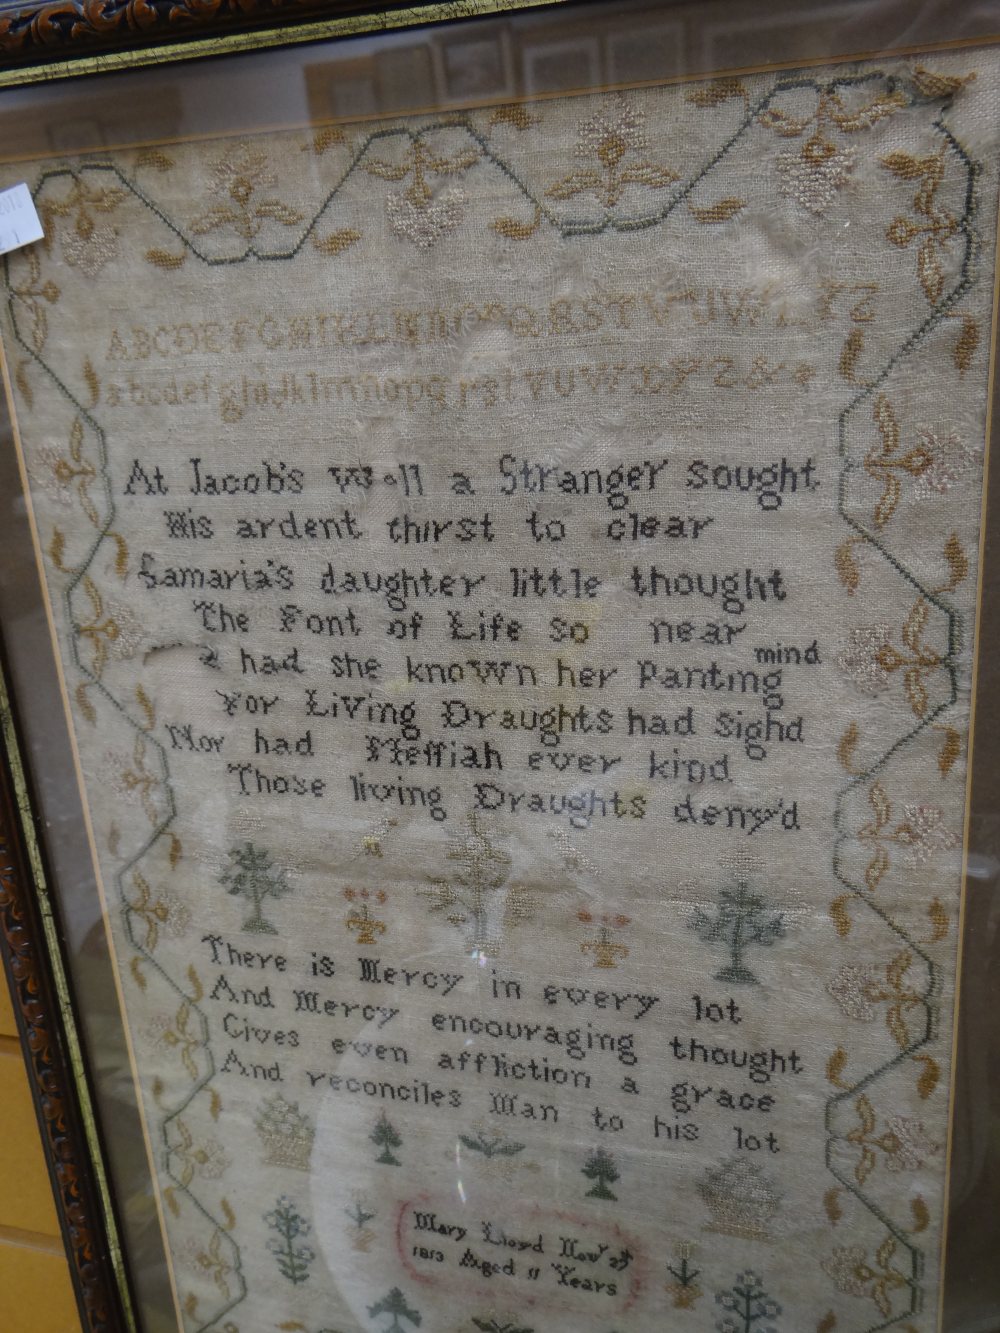 ABCDEFGHIKLMNOPQRSTVUWXYZ
abcdefghijklmnopqrstvuwxyz&
At Jacob's Well a Stranger sought
His ardent thirst to clear
Samaria's daughter little thought
The Font of Life so near
had she known her Panting mind
For Living Draughts had Sighd
Nor had Meſſiah ever kind
Those living Draughts deny'd
There is Mercy in every lot
And Mercy encouraging thought
Gives even affliction a grace
And reconciles Man to his lot
Mary Lloyd Novr 25
1813 Aged 11 Years